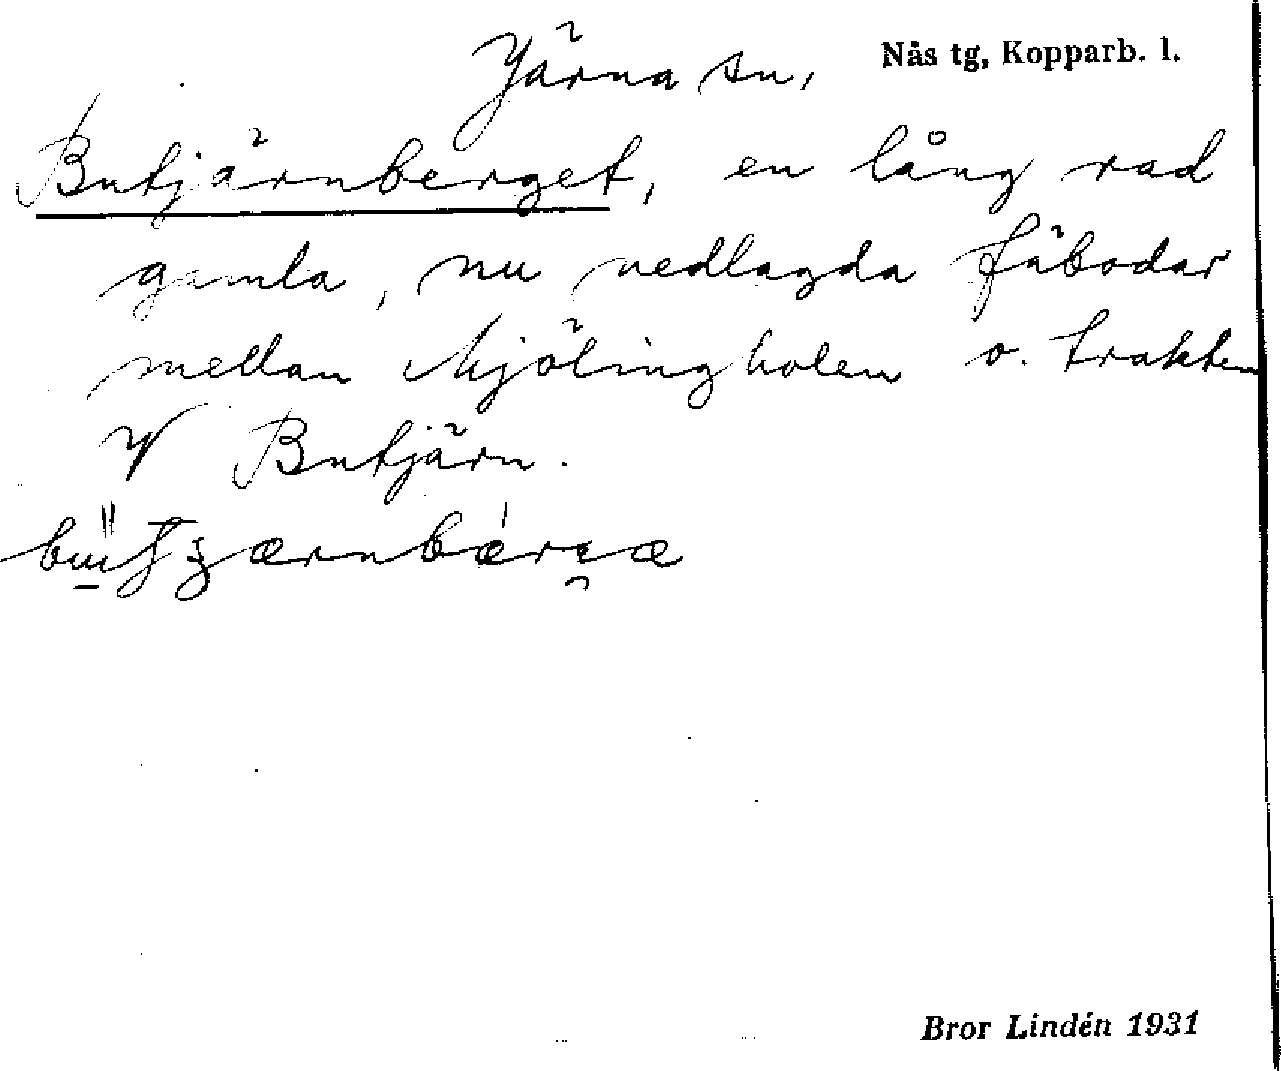 Järna sn,
Nås tg, Kopparb. l.
Butjärnberget, en lång rad
gamla, nu nedlagda fäbodar
mellan Mjölingholen o. trakten
V Butjärn.
Bror Lindén 1931